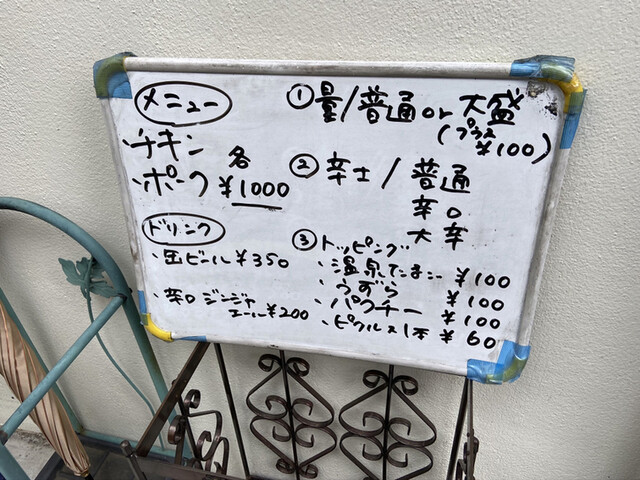 メニュー
・チキン
・ポーク 各¥1000
ドリンク
・缶ビール¥350
・辛口ジンジャ
エール¥200
①量/普通or大盛
(プラス
¥100)
②辛さ/普通
辛口
大辛
③トッピング
・温泉たまご ¥100
・うずら ¥100
・パクチー ¥100
・ピクルス1本 ¥60